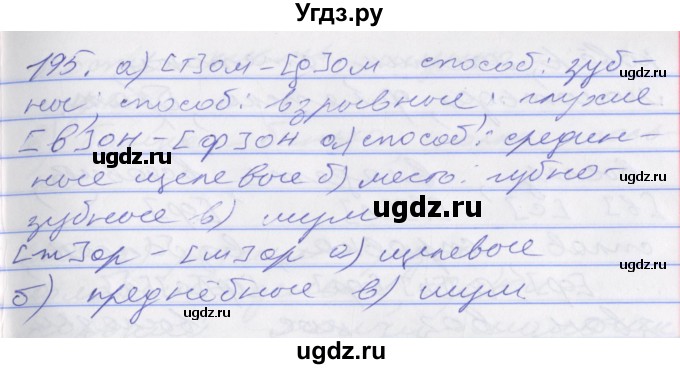 Угдз.ру
195. а) [т]ом – [д]ом способ: зуб-
ные; способ: взрывные; глухие
[в]он – [ф]он а) способ: средин-
ные щелевые б) место: губно-
зубные в) шум
[ж]ар – [ш]ар а) щелевые
б) преднёбные в) шум
ugdz.ru
ugdz.ru
ugdz.ru
ugdz.ru
ugdz.ru
ugdz.ru
ugdz.ru
ugdz.ru